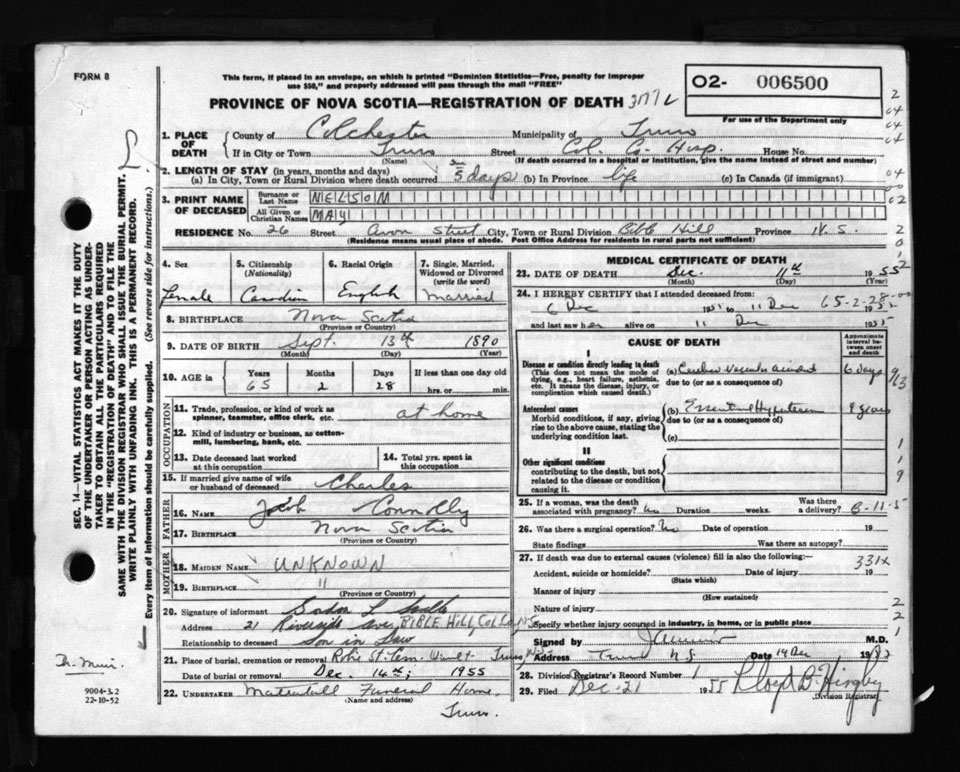 FORM 8
This form, if placed in an envelope, on which is printed "Dominion Statistics—Free, penalty for improper
use $50," and properly addressed will pass through the mail "FREE"
O2- 006500
For use of the Department only
PROVINCE OF NOVA SCOTIA—REGISTRATION OF DEATH
1. PLACE OF DEATH County of Colchester Municipality of Truro
If in City or Town Truro Street Col. Co. Hosp. House No.
(Name) (If death occurred in a hospital or institution, give the name instead of street and number)
2. LENGTH OF STAY (in years, months and days)
(a) In City, Town or Rural Division where death occurred 5 days (b) In Province life (c) In Canada (if immigrant)
3. PRINT NAME OF DECEASED Surname or Last Name NELSON
All Given or Christian Names MAY
RESIDENCE No. 26 Street Street City, Town or Rural Division Bible Hill Province N.S.
(Residence means usual place of abode. Post Office Address for residents in rural parts not sufficient)
4. Sex Female
5. Citizenship (Nationality) Canadian
6. Racial Origin English
7. Single, Married, Widowed or Divorced (write the word) Married
8. BIRTHPLACE Nova Scotia
(Province or Country)
9. DATE OF BIRTH Sept. 13th 1890
(Month) (Day) (Year)
10. AGE in Years Months Days If less than one day old
65 2 28 hrs. or min.
OCCUPATION
11. Trade, profession, or kind of work as spinner, teamster, office clerk, etc. at home
12. Kind of industry or business, as cotton-mill, lumbering, bank, etc.
13. Date deceased last worked at this occupation
14. Total yrs. spent in this occupation
15. If married give name of wife or husband of deceased Charles
FATHER
16. NAME Connolly
17. BIRTHPLACE Nova Scotia
(Province or Country)
MOTHER
18. MAIDEN NAME UNKNOWN
19. BIRTHPLACE "
(Province or Country)
20. Signature of informant
Address 21 Riverside Ave, BIBLE HILL, Col. Co., N.S.
Relationship to deceased Son in Law
21. Place of burial, cremation or removal Truro, N.S.
Date of burial or removal Dec. 14th, 1955
22. UNDERTAKER Funeral Home,
(Name and address)
Truro.
MEDICAL CERTIFICATE OF DEATH
23. DATE OF DEATH Dec. 11th 1955
(Month) (Day)
24. I HEREBY CERTIFY that I attended deceased from:
6 Dec 1955 to 11 Dec 1955
65-2-28
and last saw her alive on 11 Dec 1955
CAUSE OF DEATH
Approximate interval between onset and death
I
Disease or condition directly leading to death
(This does not mean the mode of dying, e.g., heart failure, asthenia, etc. It means the disease, injury, or complication which caused death.)
(a) Cerebro Vascular accident 6 days
due to (or as a consequence of)
Antecedent causes
Morbid conditions, if any, giving rise to the above cause, stating the underlying condition last.
(b) Essential Hypertension years
due to (or as a consequence of)
(c)
II
Other significant conditions
contributing to the death, but not related to the disease or condition causing it.
25. If a woman, was the death associated with pregnancy? No Duration weeks. Was there a delivery?
26. Was there a surgical operation? No Date of operation 19
State findings Was there an autopsy?
27. If death was due to external causes (violence) fill in also the following:—
331X
Accident, suicide or homicide? Date of injury 19
(State which)
Manner of injury
(How sustained)
Nature of injury
Specify whether injury occurred in industry, in home, or in public place
Signed by M.D.
Address Truro N.S. Date 14 Dec 19
28. Division Registrar's Record Number
29. Filed Dec. 21 1955 Lloyd B.
Division Registrar
SEC. 14—VITAL STATISTICS ACT MAKES IT THE DUTY
OF THE UNDERTAKER OR PERSON ACTING AS UNDER-
TAKER TO OBTAIN ALL THE PARTICULARS REQUIRED
IN THE "REGISTRATION OF DEATH" AND TO FILE THE
SAME WITH THE DIVISION REGISTRAR WHO SHALL ISSUE THE BURIAL PERMIT.
WRITE PLAINLY WITH UNFADING INK. THIS IS A PERMANENT RECORD.
Every item of information should be carefully supplied. (See reverse side for instructions.)
Dr. Muir.
9004-3.2
22-10-52